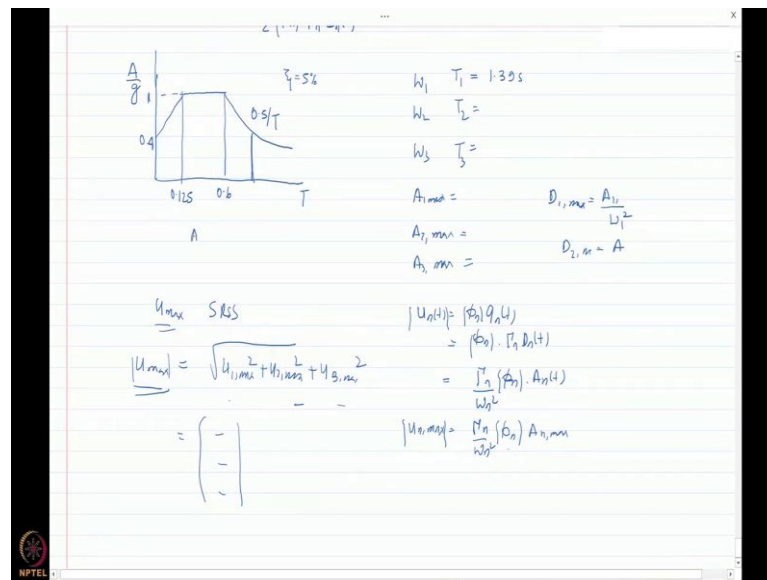 A/g
ξ=5%
1
0.5/T
0.4
0.125 0.6 T
A
W₁ T₁ = 1.39s
W₂ T₂ =
W₃ T₃ =
A₁,max =
A₂,max =
A₃,max =
D₁,max = A₁,/W₁²
D₂,m = A
Umax SRSS
|Umax| = √u₁,max² + u₂,max² + u₃,max²
= ( - - - )
|Un(t)| = {φn} qn(t)
= {φn} · Γn Dn(t)
= Γn/Wn² {φn} · An(t)
|Un,max| = Γn/Wn² {φn} An,max
NPTEL